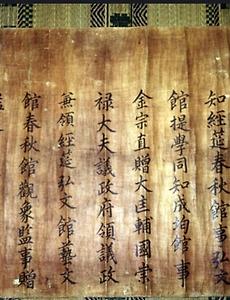 知經筵春秋館事弘文
館提學同知成均館事
金宗直贈大匡輔國崇
禄大夫議政府領議政
兼領經筵弘文館藝文
館春秋館觀象監事贈